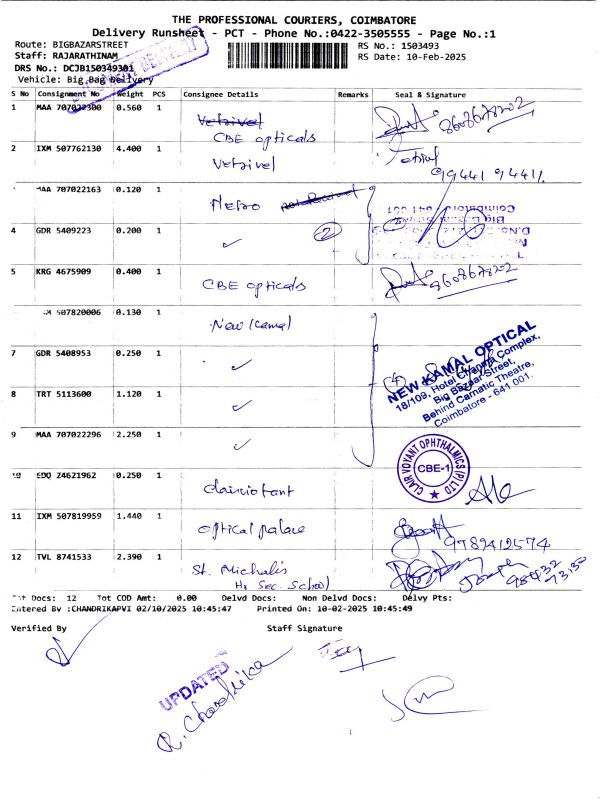 THE PROFESSIONAL COURIERS, COIMBATORE
Delivery Runsheet - PCT - Phone No.:0422-3505555 - Page No.:1
Route: BIGBAZARSTREET
RS No.: 1503493
Staff: RAJARATHINAM
RS Date: 10-Feb-2025
DRS No.: DCJB150349301
Vehicle: Big Bag Delivery
S No Consignment No Weight PCS Consignee Details Remarks Seal & Signature
1 MAA 707022300 0.560 1 Vetrivel
CBE opticals 9608678202
2 IXM 507762130 4.400 1 Vetrivel
99441 94411
MAA 707022163 0.120 1 Metro
4 GDR 5409223 0.200 1 ✓ 2
5 KRG 4675909 0.400 1 CBE opticals 9608678202
507820006 0.130 1 New Kamal
7 GDR 5408953 0.250 1 ✓
NEW KAMAL OPTICAL
18/109, Hotel Channma Complex,
Big Bazaar Street,
Behind Carnatic Theatre,
Coimbatore - 641 001.
8 TRT 5113600 1.120 1 ✓ 4
9 MAA 707022296 2.250 1 ✓
CLAIR VOYANT OPHTHALMICS (P) LTD
CBE-1
10 EDQ 24621962 0.250 1
11 IXM 507819959 1.440 1 optical palace
9789412574
12 TVL 8741533 2.390 1 St. Michalis
Hr Sec. School 98432
73130
Tot Docs: 12 Tot COD Amt: 0.00 Delvd Docs: Non Delvd Docs: Delvy Pts:
Entered By :CHANDRIKAPVI 02/10/2025 10:45:47 Printed On: 10-02-2025 10:45:49
Verified By Staff Signature
UPDATED
R. Chandrika